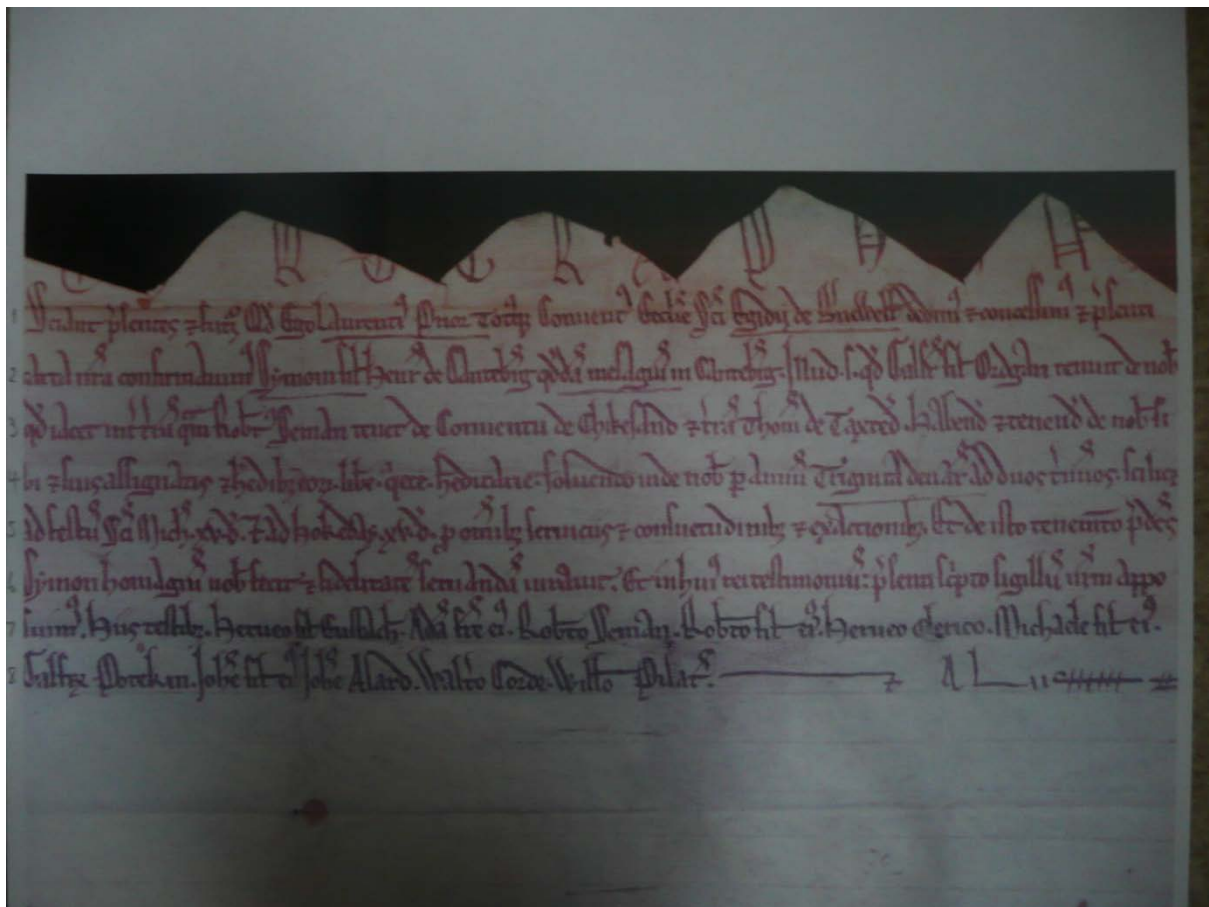 C Y R O G R A P H
1 Sciant p'sentes z futuri Qd Ego Laurenti' Prior Totusq; Convent' Ecclie Sci Egidij de Dedim' z concessim' z p'senti
2 carta nra confirmavim' Symoni fil Henr' de q'dda mesuagiu' in Illud .s. q'd Galfr' fil Ordgar tenuit de nob
3 qd iacet int' t'ra qm Robt' Seman tenet de Conventu de Chikesand z t'ra Thom' de Taxted. Habend' z tenend' de nob si
4 bi z suis assignatis z h'edibz eoz. libe. q'ete. heditarie. solvendo inde nob p annu' Triginta denar' ad duos t'minos. scilicz
5 ad festu' Sci Mich. xv. d. z ad hokeday. xv. d. p omibz serviciis z consuetudinibz z exactionibz. Et de isto tenem'to p'dcs
6 Symon homagiu' nob fecit z fidelitate servanda' iuravit. Et in hui' rei testimoniu': p'senti sc'pto sigillu' nrm appo
7 suim'. Hiis testibz. Herveo fil Eustach. Ada fr'e ei'. Robto Seman. Robto fil ei'. Herveo Clerico. Michaele fil ei'.
8 Galfr' Potekin. Johe fil ei' Johe Alard. Walt'o Corde. Willo Pilat'.